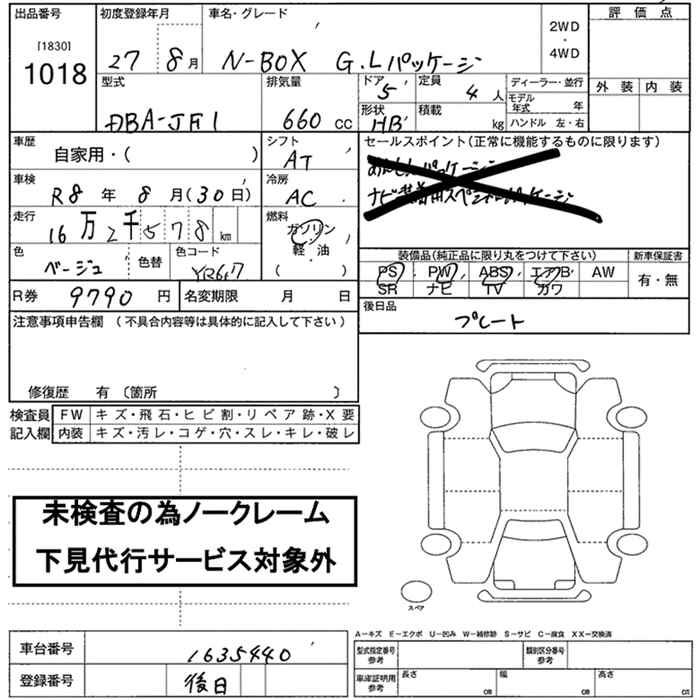 出品番号 初度登録年月 車名・グレード 評価点
[1830]
1018
27 8月 N-BOX G.Lパッケージ
2WD
・
4WD
外装 内装
型式 排気量 ドア 定員 ディーラー・並行
DBA-JF1 660 cc 5 4人
モデル年式 年
形状 積載
HB kg ハンドル 左・右
車歴 シフト セールスポイント(正常に機能するものに限ります)
自家用・( ) AT
車検 冷房
R8年8月(30日) AC
走行 燃料
16万2千578km ガソリン
軽・油
( )
色 色替 色コード
ベージュ YR6
装備品(純正品に限り丸をつけて下さい) 新車保証書
PS PW ABS エアB AW 有・無
SR ナビ TV カワ
R券 9790円 名変期限 月 日
後日品
プレート
注意事項申告欄 (不具合内容等は具体的に記入して下さい)
修復歴 有 〔箇所 〕
検査員 FW キズ・飛石・ヒビ割・リペア跡・X要
記入欄 内装 キズ・汚レ・コゲ・穴・スレ・キレ・破レ
未検査の為ノークレーム
下見代行サービス対象外
スペア
A-キズ E-エクボ U-凹み W-補修跡 S-サビ C-腐食 XX-交換済
車台番号 1635440
登録番号 後日
型式指定番号 参考 類別区分番号 参考
車庫証明用 参考 長さ cm 幅 cm 高さ cm